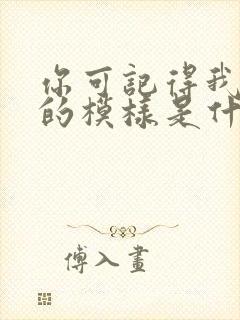 你可記得我
的模樣是什
傅入畫